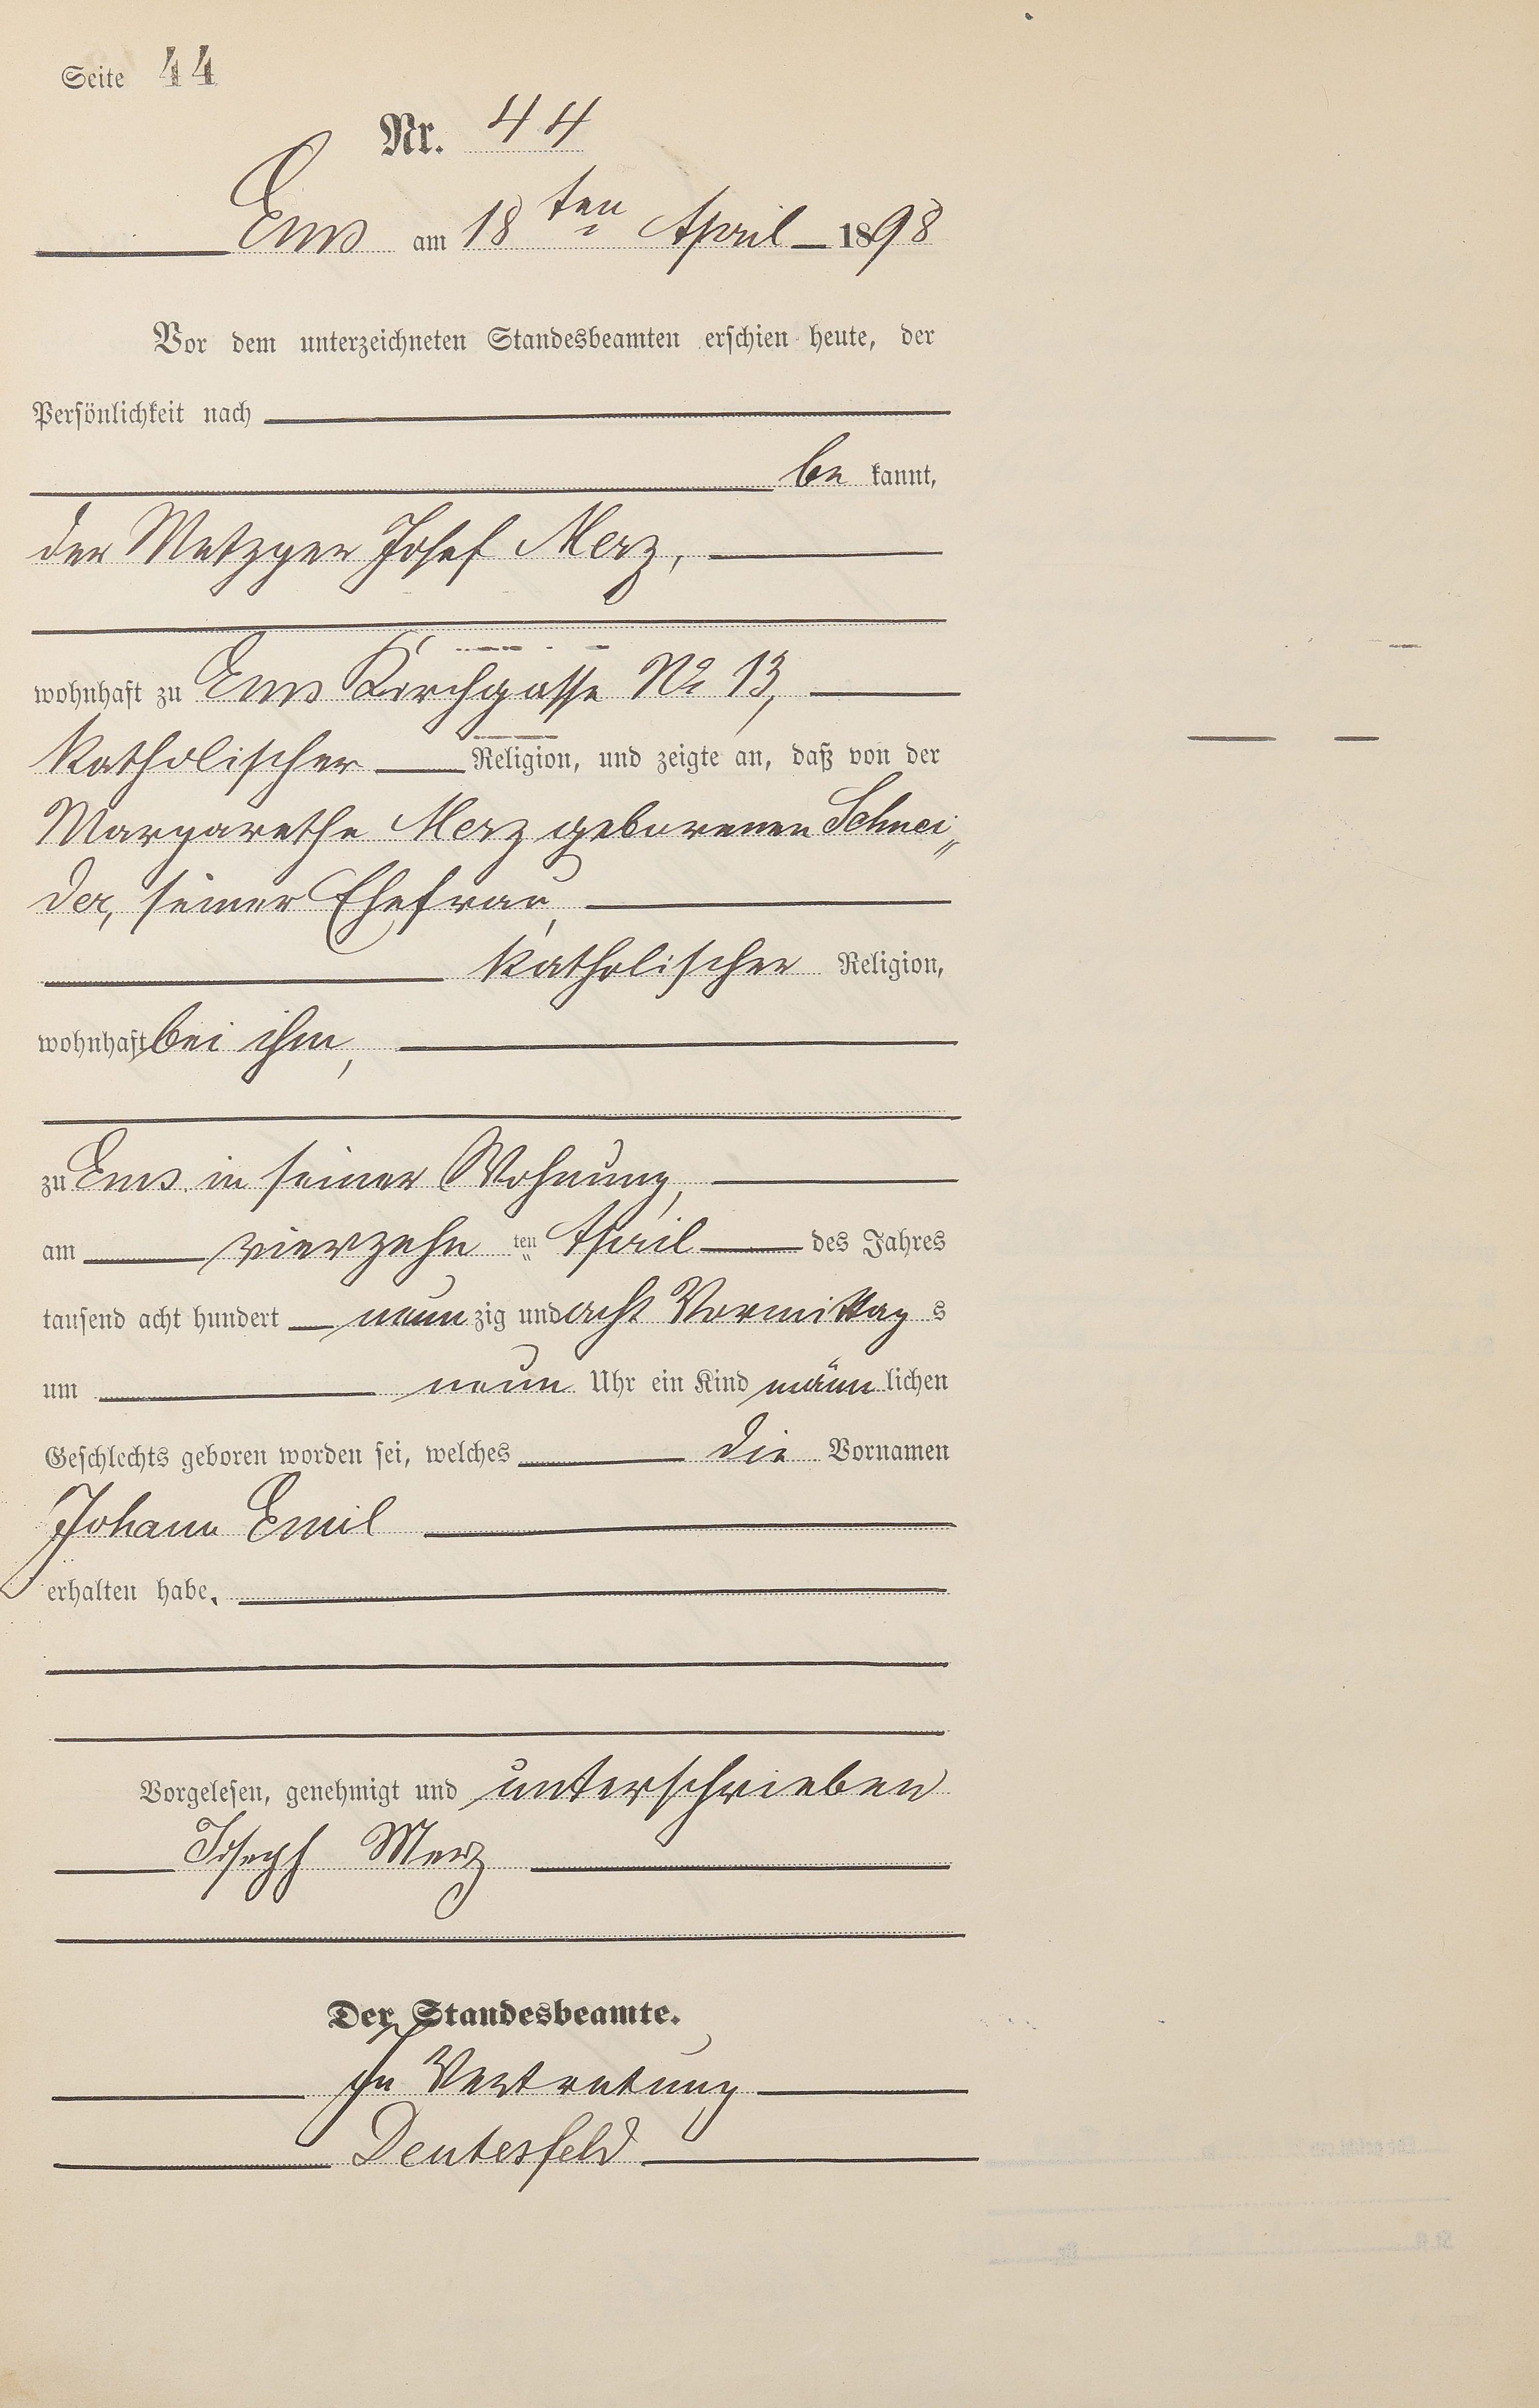 Seite 44
Nr. 44
Ems am 18ten April 1898
Vor dem unterzeichneten Standesbeamten erschien heute, der
Persönlichkeit nach
be kannt,
der Metzger Josef Merz,
wohnhaft zu Ems Kirchgasse No 13,
katholischer Religion, und zeigte an, daß von der
Margarethe Merz geborenen Schnei„
der, seiner Ehefrau,
katholischer Religion,
wohnhaft bei ihm,
zu Ems in seiner Wohnung,
am vierzehn ten April des Jahres
tausend acht hundert neun zig und acht Vormittag s
um neun Uhr ein Kind männ lichen
Geschlechts geboren worden sei, welches die Vornamen
Johann Emil
erhalten habe.
Vorgelesen, genehmigt und unterschrieben
Joseph Merz
Der Standesbeamte.
In Vertretung
Deutesfeld